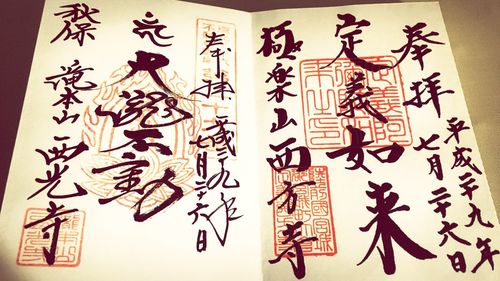 奉拝
平成二十九年
七月二十六日
定義如来
極楽山西方寺
奉拝
平成二九年
七月二十六日
大瀧不動
秋保
滝本山西光寺